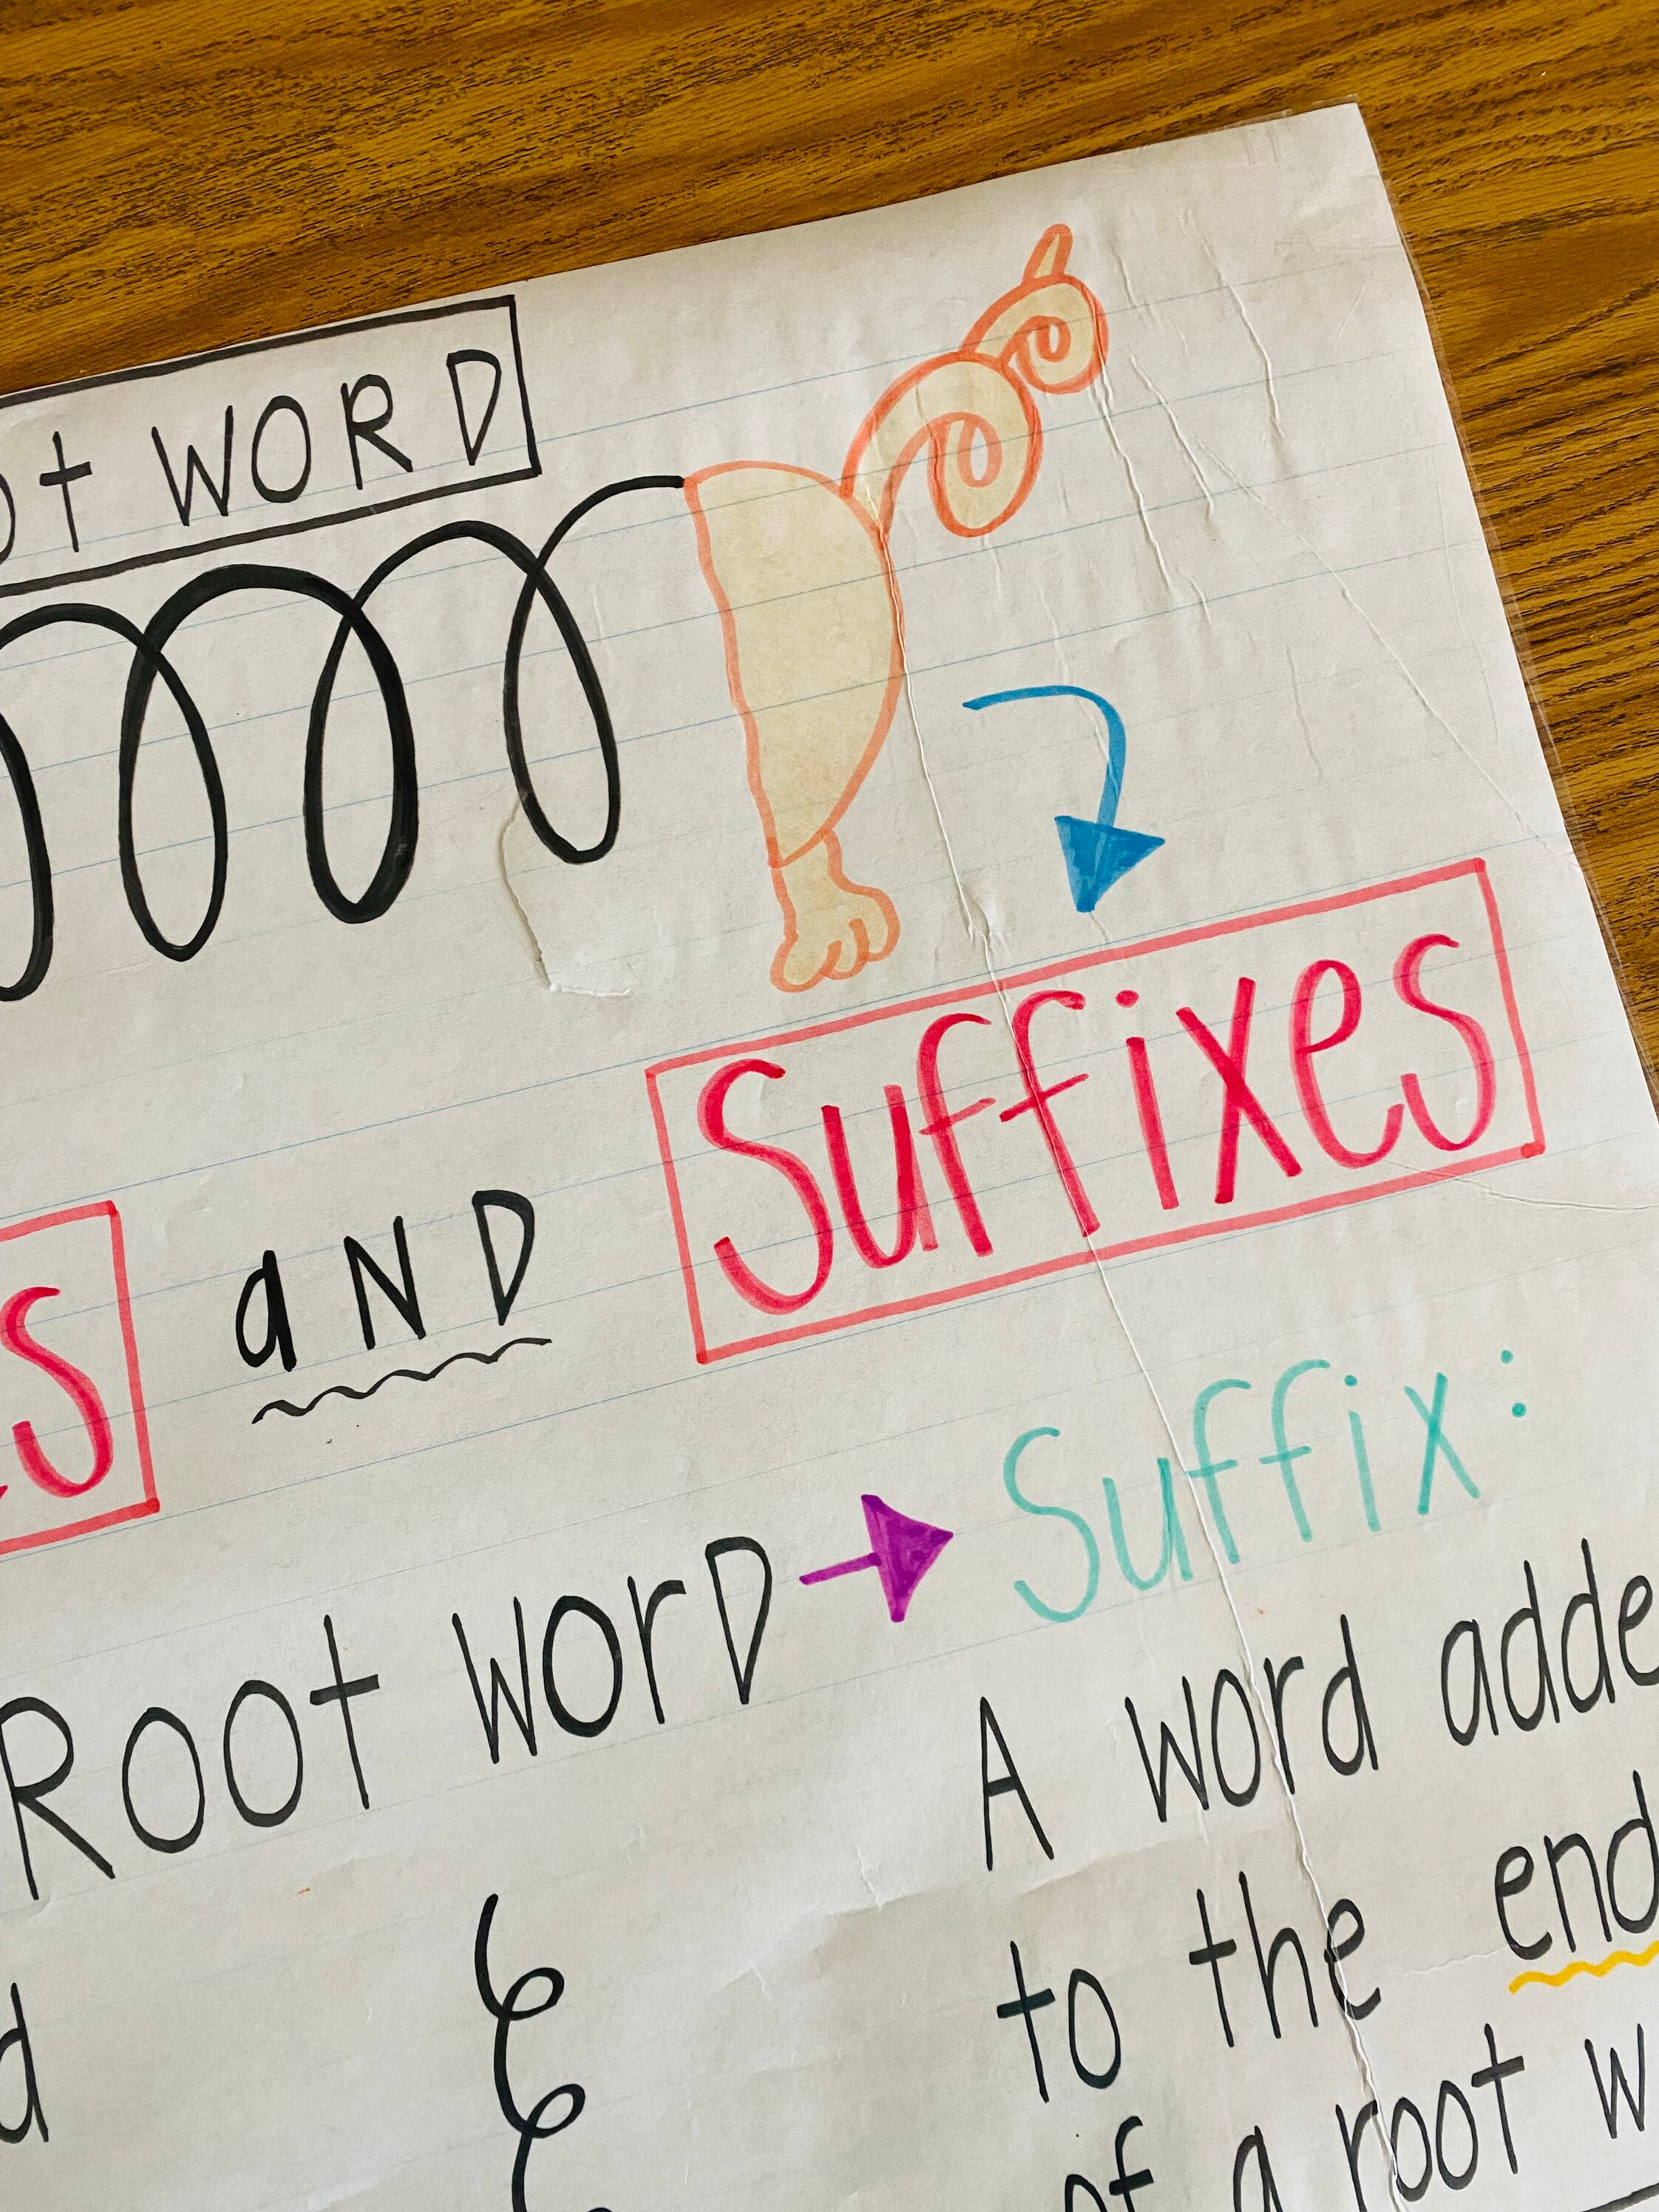 WORD
aND Suffixes
Root WorD Suffix:
A word
to the end
of a root